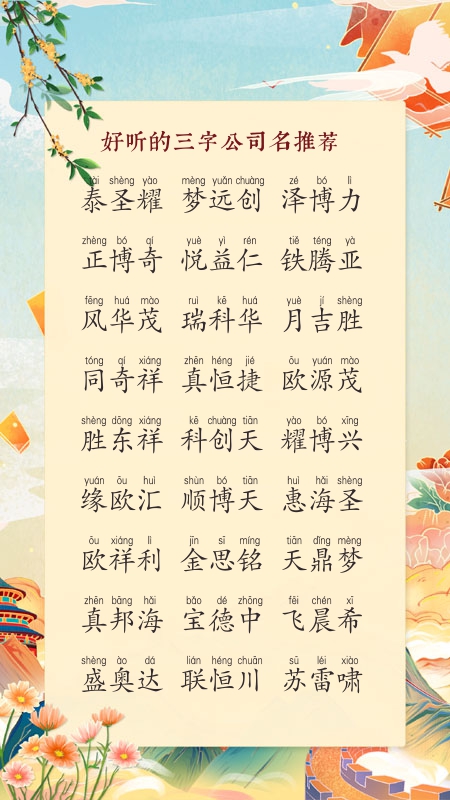 好听的三字公司名推荐
tài shèng yào mèng yuǎn chuàng zé bó lì
泰圣耀 梦远创 泽博力
zhèng bó qí yuè yì rén tiě téng yà
正博奇 悦益仁 铁腾亚
fēng huá mào ruì kē huá yuè jí shèng
风华茂 瑞科华 月吉胜
tóng qí xiáng zhēn héng jié ōu yuán mào
同奇祥 真恒捷 欧源茂
shèng dōng xiáng kē chuàng tiān yào bó xīng
胜东祥 科创天 耀博兴
yuán ōu huì shùn bó tiān huì hǎi shèng
缘欧汇 顺博天 惠海圣
ōu xiáng lì jīn sī míng tiān dǐng mèng
欧祥利 金思铭 天鼎梦
zhēn bāng hǎi bǎo dé zhōng fēi chén xī
真邦海 宝德中 飞晨希
shèng ào dá lián héng chuān sū léi xiào
盛奥达 联恒川 苏雷啸